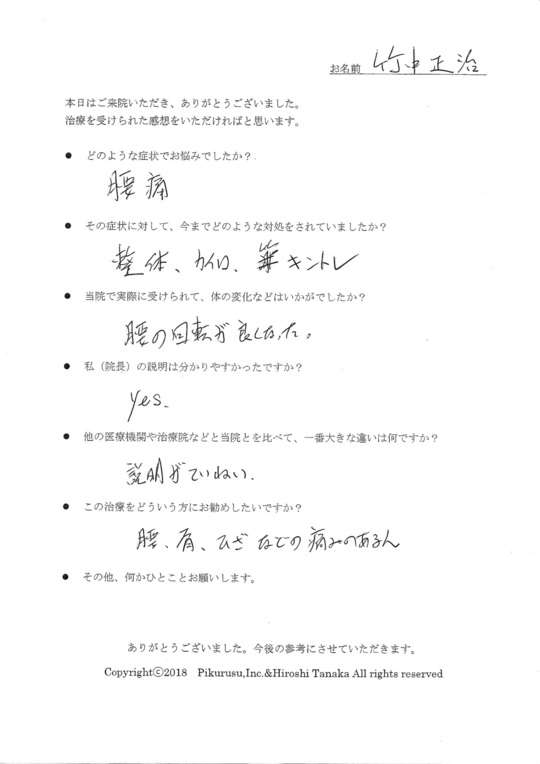 お名前 竹中正治
本日はご来院いただき、ありがとうございました。
治療を受けられた感想をいただければと思います。
● どのような症状でお悩みでしたか?
腰痛
● その症状に対して、今までどのような対処をされていましたか?
整体、カイロ、筋キントレ
● 当院で実際に受けられて、体の変化などはいかがでしたか?
腰の回転が良くなった。
● 私(院長)の説明は分かりやすかったですか?
yes.
● 他の医療機関や治療院などと当院とを比べて、一番大きな違いは何ですか?
説明がていねい.
● この治療をどういう方にお勧めしたいですか?
腰、肩、ひざなどの痛みのある人
● その他、何かひとことお願いします。
ありがとうございました。今後の参考にさせていただきます。
Copyrightⓒ2018 Pikurusu,Inc.&Hiroshi Tanaka All rights reserved